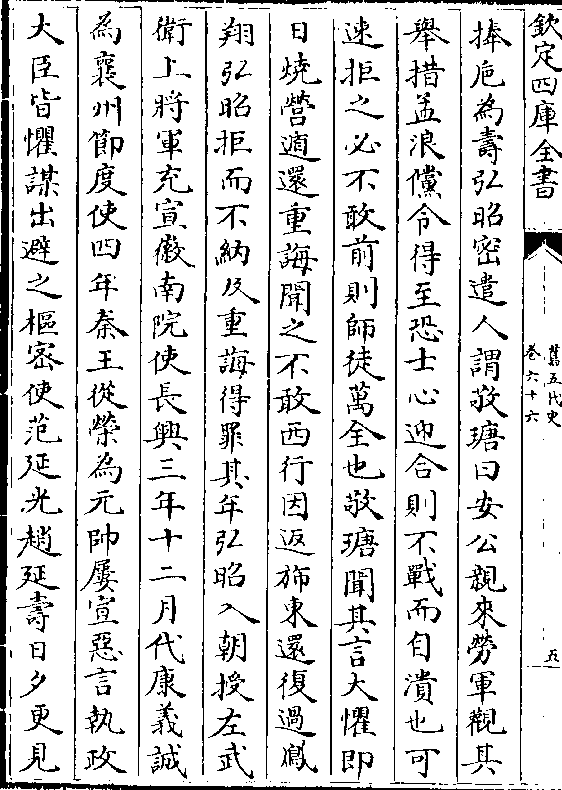 欽定四庫全書
舊五代史
卷六十六
五
捧巵為壽弘昭密遣人謂敬瑭曰安公親來勞軍觀其
舉措孟浪儻令得至恐士心迎合則不戰而自潰也可
速拒之必不敢前則師徒萬全也敬瑭聞其言大懼即
日燒營遁還重誨聞之不敢西行因返斾東還復過鳳
翔弘昭拒而不納及重誨得罪其年弘昭入朝授左武
衛上將軍充宣徽南院使長興三年十二月代康義誠
為襄州節度使四年秦王從榮為元帥屢宣惡言執政
大臣皆懼謀出避之樞密使范延光趙延壽日夕更見